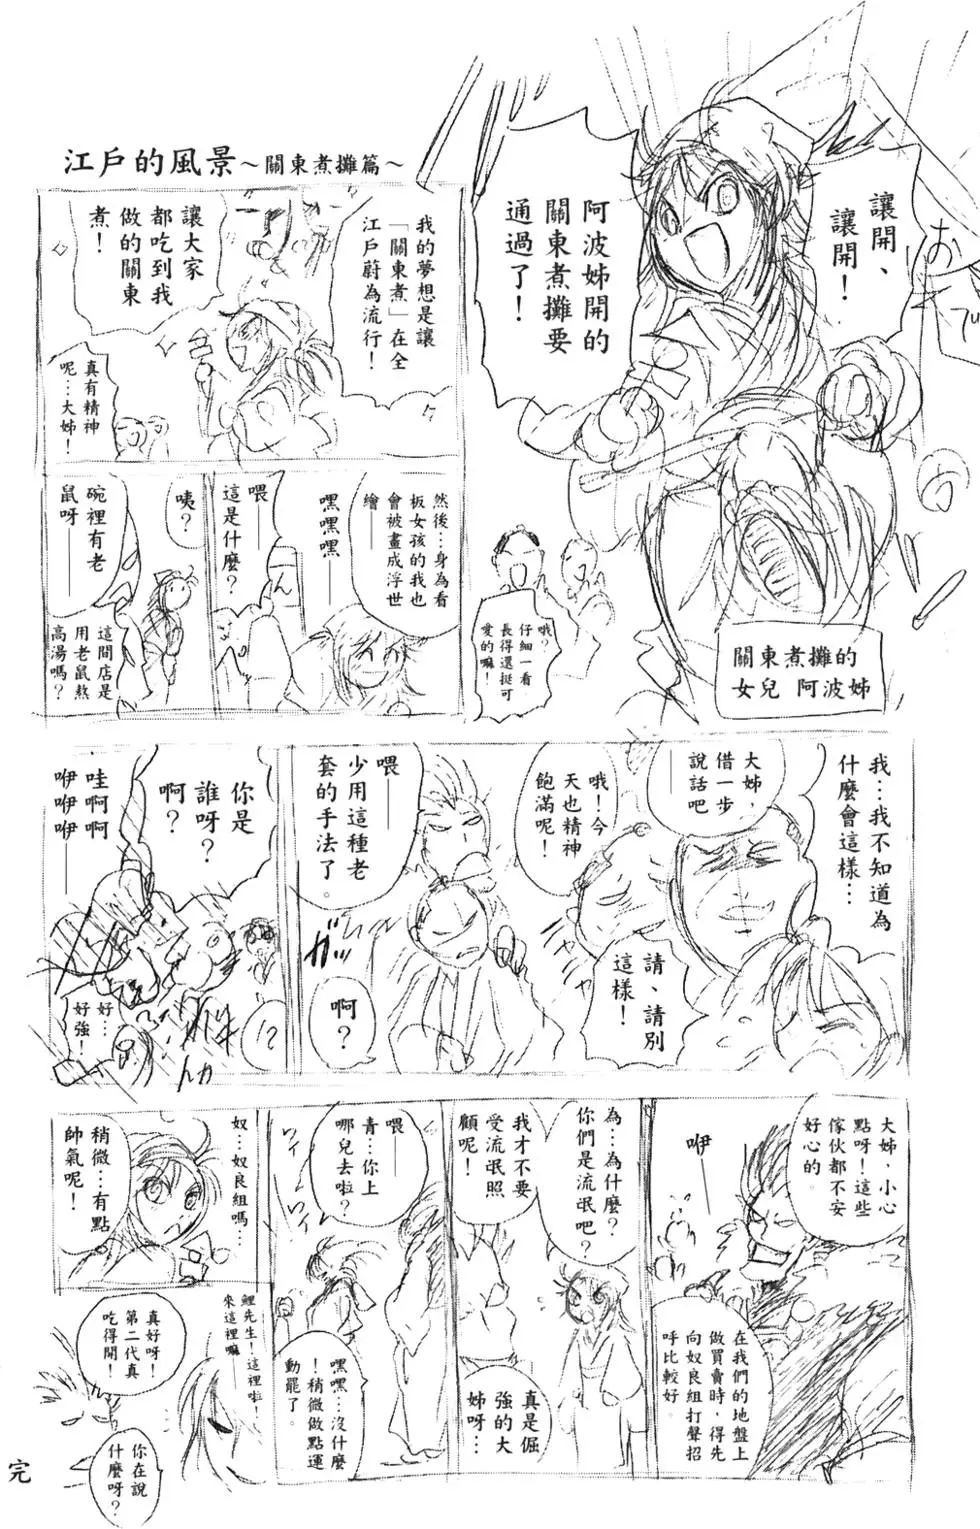 江戶的風景～關東煮攤篇～
讓開、
讓開！
阿波姊開的
關東煮攤要
通過了！
お
で
の
關東煮攤的
女兒 阿波姊
哦？
仔細一看
長得還挺可
愛的嘛！
我的夢想是讓
「關東煮」在全
江戶蔚為流行！
讓大家
都吃到我
做的關東
煮！
真有精神
呢…大姊！
然後…身為看
板女孩的我也
會被畫成浮世
繪——
嘿嘿嘿——
喂——
這是什麼？
咦？
碗裡有老
鼠呀——
這間店是
用老鼠熬
高湯嗎？
我…我不知道為
什麼會這樣…
大姊，
借一步
說話吧——
請、請別
這樣！
哦！今
天也精神
飽滿呢！
ニヤニヤ
喂——
少用這種老
套的手法了。
ガッ
啊？
你是
誰呀？
啊？
！？
哇啊啊
咿咿咿——
好…
好強！
ドカ
大姊，小心
點呀！這些
傢伙都不安
好心的。
咿——
在我們的地盤上
做買賣時，得先
向奴良組打聲招
呼比較好。
為…為什麼？
你們是流氓吧？
我才不要
受流氓照
顧呢！
真是倔
強的大
姊呀…
喂——
青…你上
哪兒去啦？
ワイワイ
嘿嘿…沒什麼
！稍微做點運
動罷了。
奴…奴良組嗎…
稍微…有點
帥氣呢！
鯉先生！這裡啦！
來這裡嘛——
真好呀！
第二代真
吃得開！
你在說
什麼呀？
完